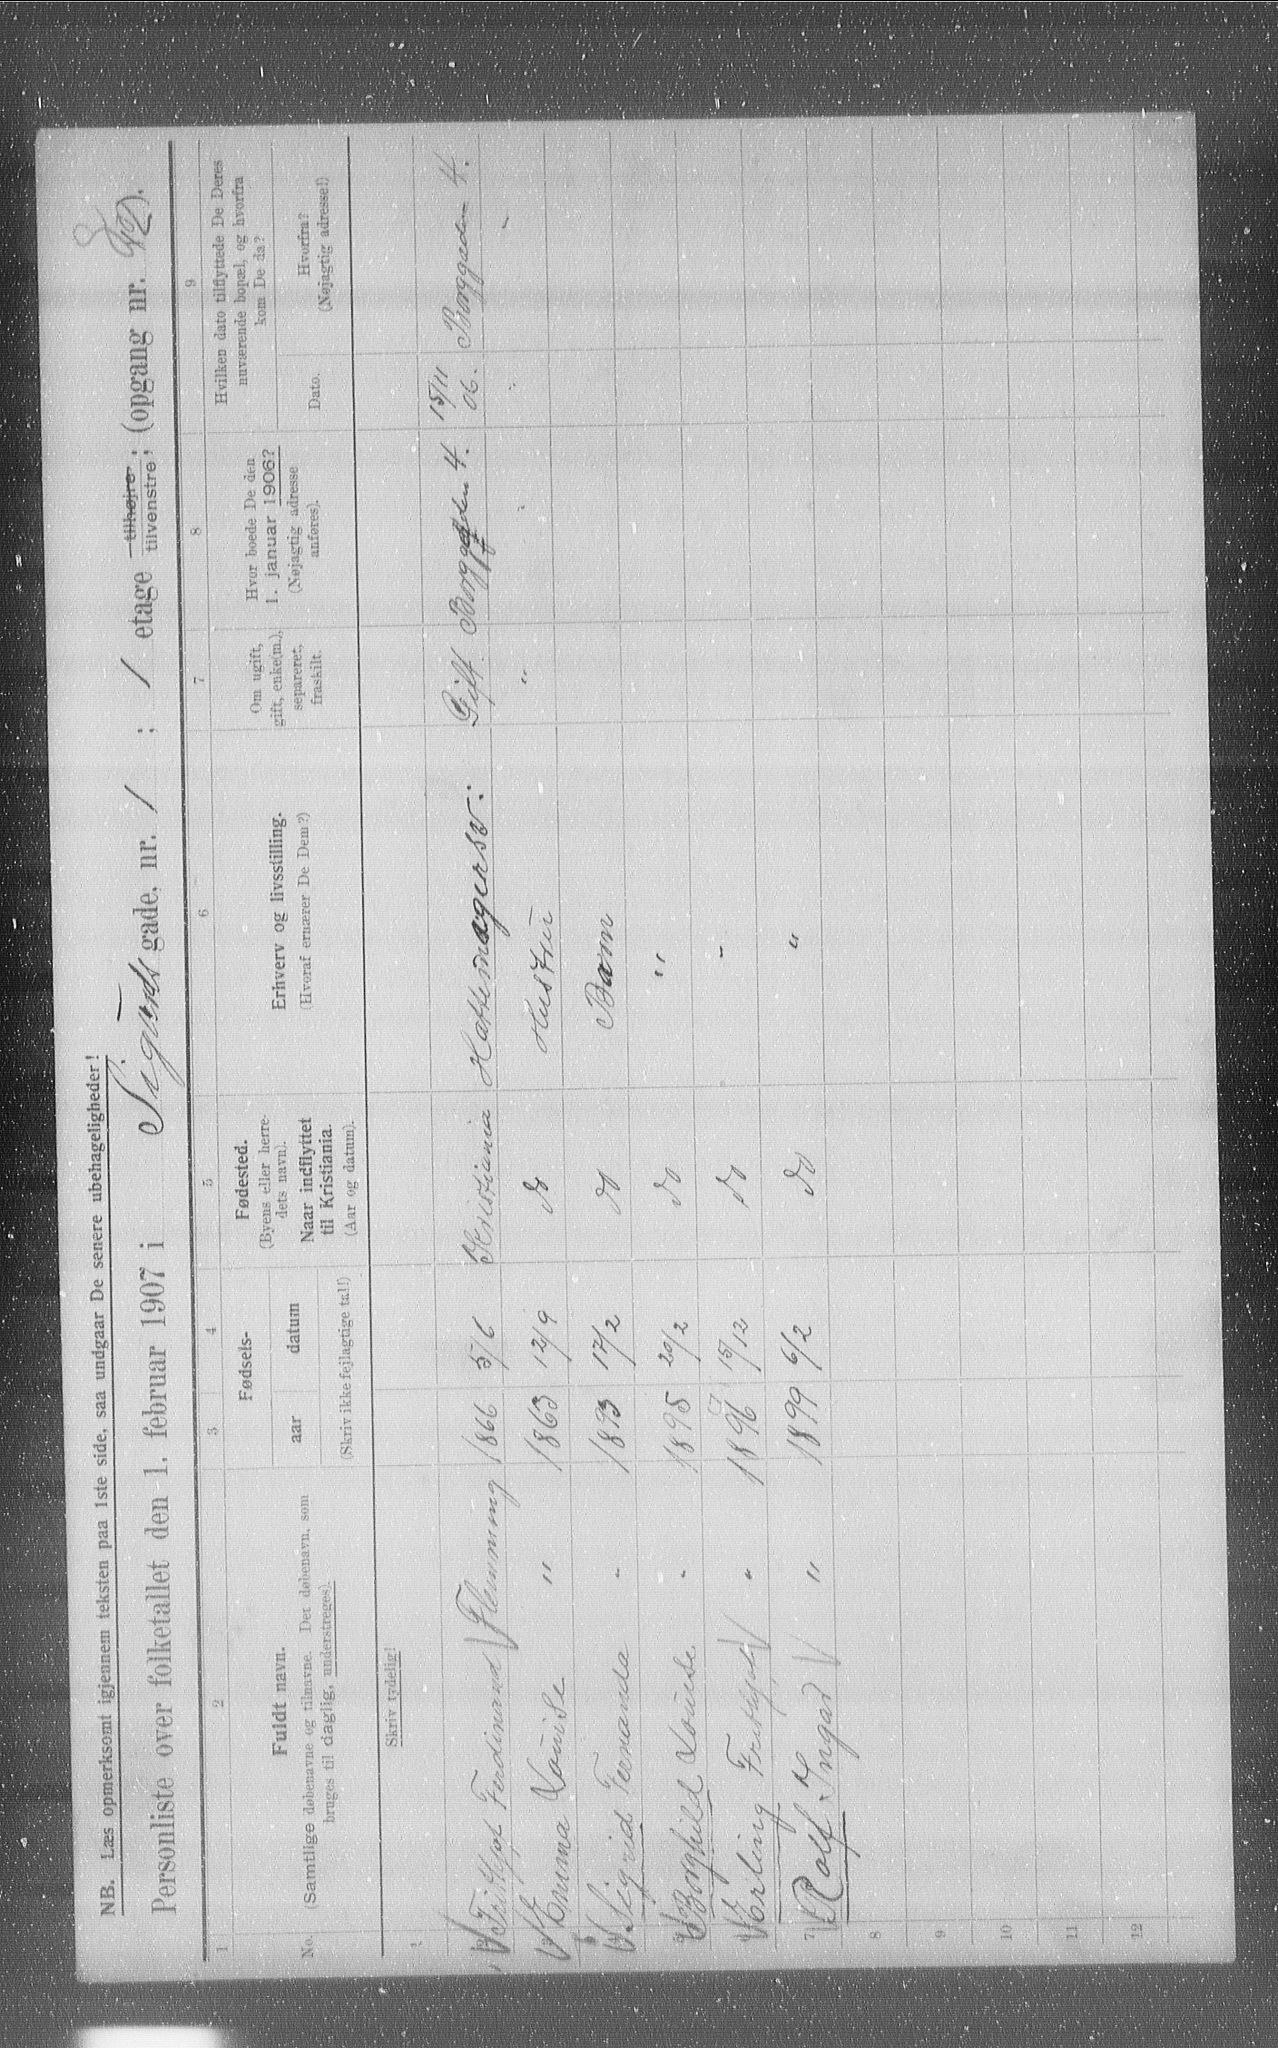 NB. Læs opmerksomt igjennem teksten paa 1ste side, saa undgaar De senere ubehageligheder!
Personliste over folketallet den 1. februar 1907 i Sigurds gade, nr. 1 ; 1 etage tilhøjre tilvenstre; (opgang nr. ).
1 2 3 4 5 6 7 8 9
No.
Fuldt navn.
(Samtlige døbenavne og tilnavne. Det døbenavn, som
bruges til daglig, understreges).
Fødsels-
aar datum
(Skriv ikke fejlagtige tal!)
Fødested.
(Byens eller herre-
dets navn).
Naar indflyttet
til Kristiania.
(Aar og datum).
Erhverv og livsstilling.
(Hvoraf ernærer De Dem?)
Om ugift,
gift, enke(m.),
separeret,
fraskilt.
Hvor boede De den
1. januar 1906?
(Nøjagtig adresse
anføres).
Hvilken dato tilflyttede De Deres
nuværende bopæl, og hvorfra
kom De da?
Dato.
Hvorfra?
(Nøjagtig adresse!)
Skriv tydelig!
1
Frithjof Ferdinand Flemming 1866 5/6 Kristiania Hattemagersv: Gift Borggaden 4. 15/11 06. Borggaden 4.
Emma Louise " 1863 12/9 do Hustru " " " "
Sigrid Fernanda " 1893 17/2 do Barn
Borghild Louise " 1895 20/2 do "
Erling Frithjof " 1896 15/12 do "
7 Rolf Ingar " 1899 6/2 do "
8
9
10
11
12